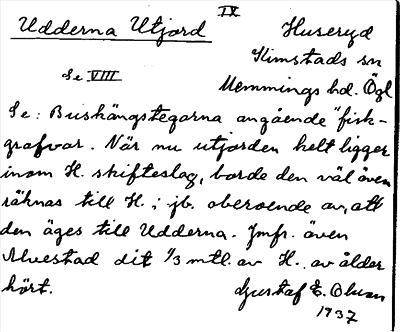 IX
Udderna Utjord Huseryd
Kimstads sn
Se VIII
Memmings hd. Ögl
Se: Bushängstegarna angående "fisk-
grafvar. När nu utjorden helt ligger
inom H. skifteslag, borde den väl även
räknas till H.; jb. oberoende av, att
den äges till Udderna. Jmfr. även
Alvestad dit 1/3 mtl. av H. av ålder
hört. Gustaf E. Olsson
1937